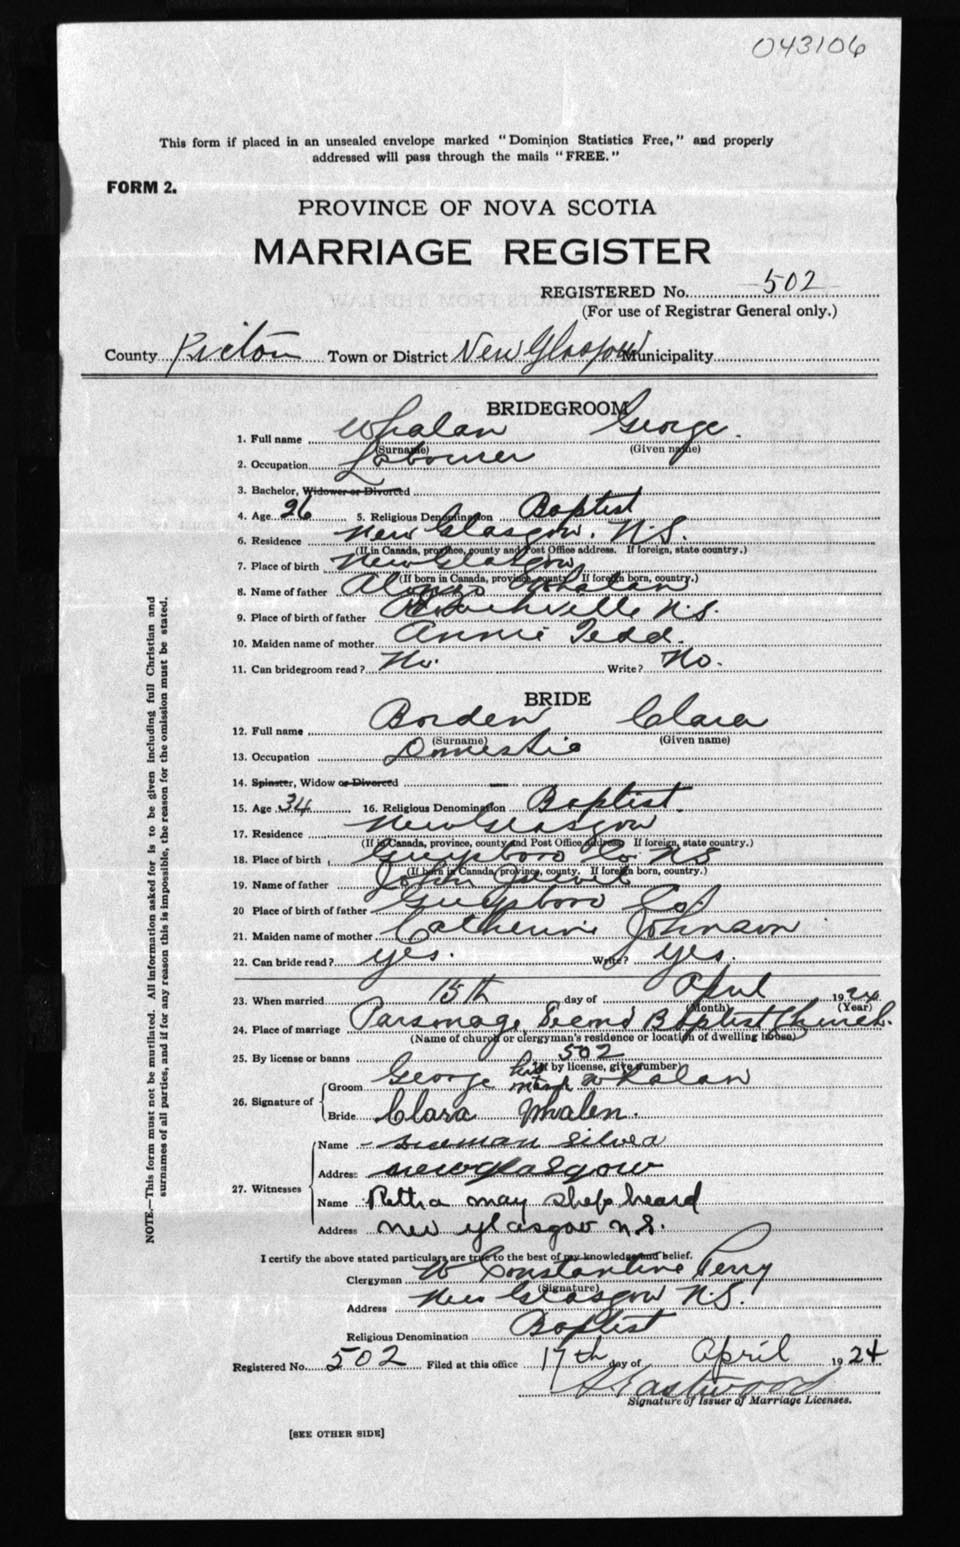 043106
This form if placed in an unsealed envelope marked "Dominion Statistics Free," and properly
addressed will pass through the mails "FREE."
FORM 2.
PROVINCE OF NOVA SCOTIA
MARRIAGE REGISTER
REGISTERED No. 502
(For use of Registrar General only.)
County Pictou Town or District New Glasgow Municipality
BRIDEGROOM
1. Full name Whalan George.
(Surname) (Given name)
2. Occupation Labourer
3. Bachelor, Widower or Divorced
4. Age 26 5. Religious Denomination Baptist
6. Residence New Glasgow, N.S.
(If in Canada, province, county and Post Office address. If foreign, state country.)
7. Place of birth New Glasgow
(If born in Canada, province, county. If foreign born, country.)
8. Name of father Alonzo Whalan
9. Place of birth of father N.S.
10. Maiden name of mother Annie Tedd.
11. Can bridegroom read? No. Write? No.
BRIDE
12. Full name Borden Clara
(Surname) (Given name)
13. Occupation Domestic
14. Spinster, Widow or Divorced
15. Age 34 16. Religious Denomination Baptist.
17. Residence New Glasgow
(If in Canada, province, county and Post Office address. If foreign, state country.)
18. Place of birth Guysboro Co. N.S
(If born in Canada, province, county. If foreign born, country.)
19. Name of father John
20 Place of birth of father Guysboro Co.
21. Maiden name of mother Catherine Johnson
22. Can bride read? yes. Write? yes.
23. When married 15th day of April 1924
(Month) (Year)
24. Place of marriage Parsonage, Second Baptist Church.
(Name of church or clergyman's residence or location of dwelling house)
25. By license or banns 502
(If by license, give number)
26. Signature of Groom George his mark Whalan
Bride Clara Whalen.
27. Witnesses Name Silver
Address New Glasgow
Name Retha may shepheard
Address new glasgow n.s.
I certify the above stated particulars are true to the best of my knowledge and belief.
Clergyman W Constantine Perry
(Signature)
Address New Glasgow N.S.
Religious Denomination Baptist
Registered No. 502 Filed at this office 17th day of April 1924
Eastwood
Signature of Issuer of Marriage Licenses.
[SEE OTHER SIDE]
NOTE.—This form must not be mutilated. All information asked for is to be given including full Christian and
surnames of all parties, and if for any reason this is impossible, the reason for the omission must be stated.